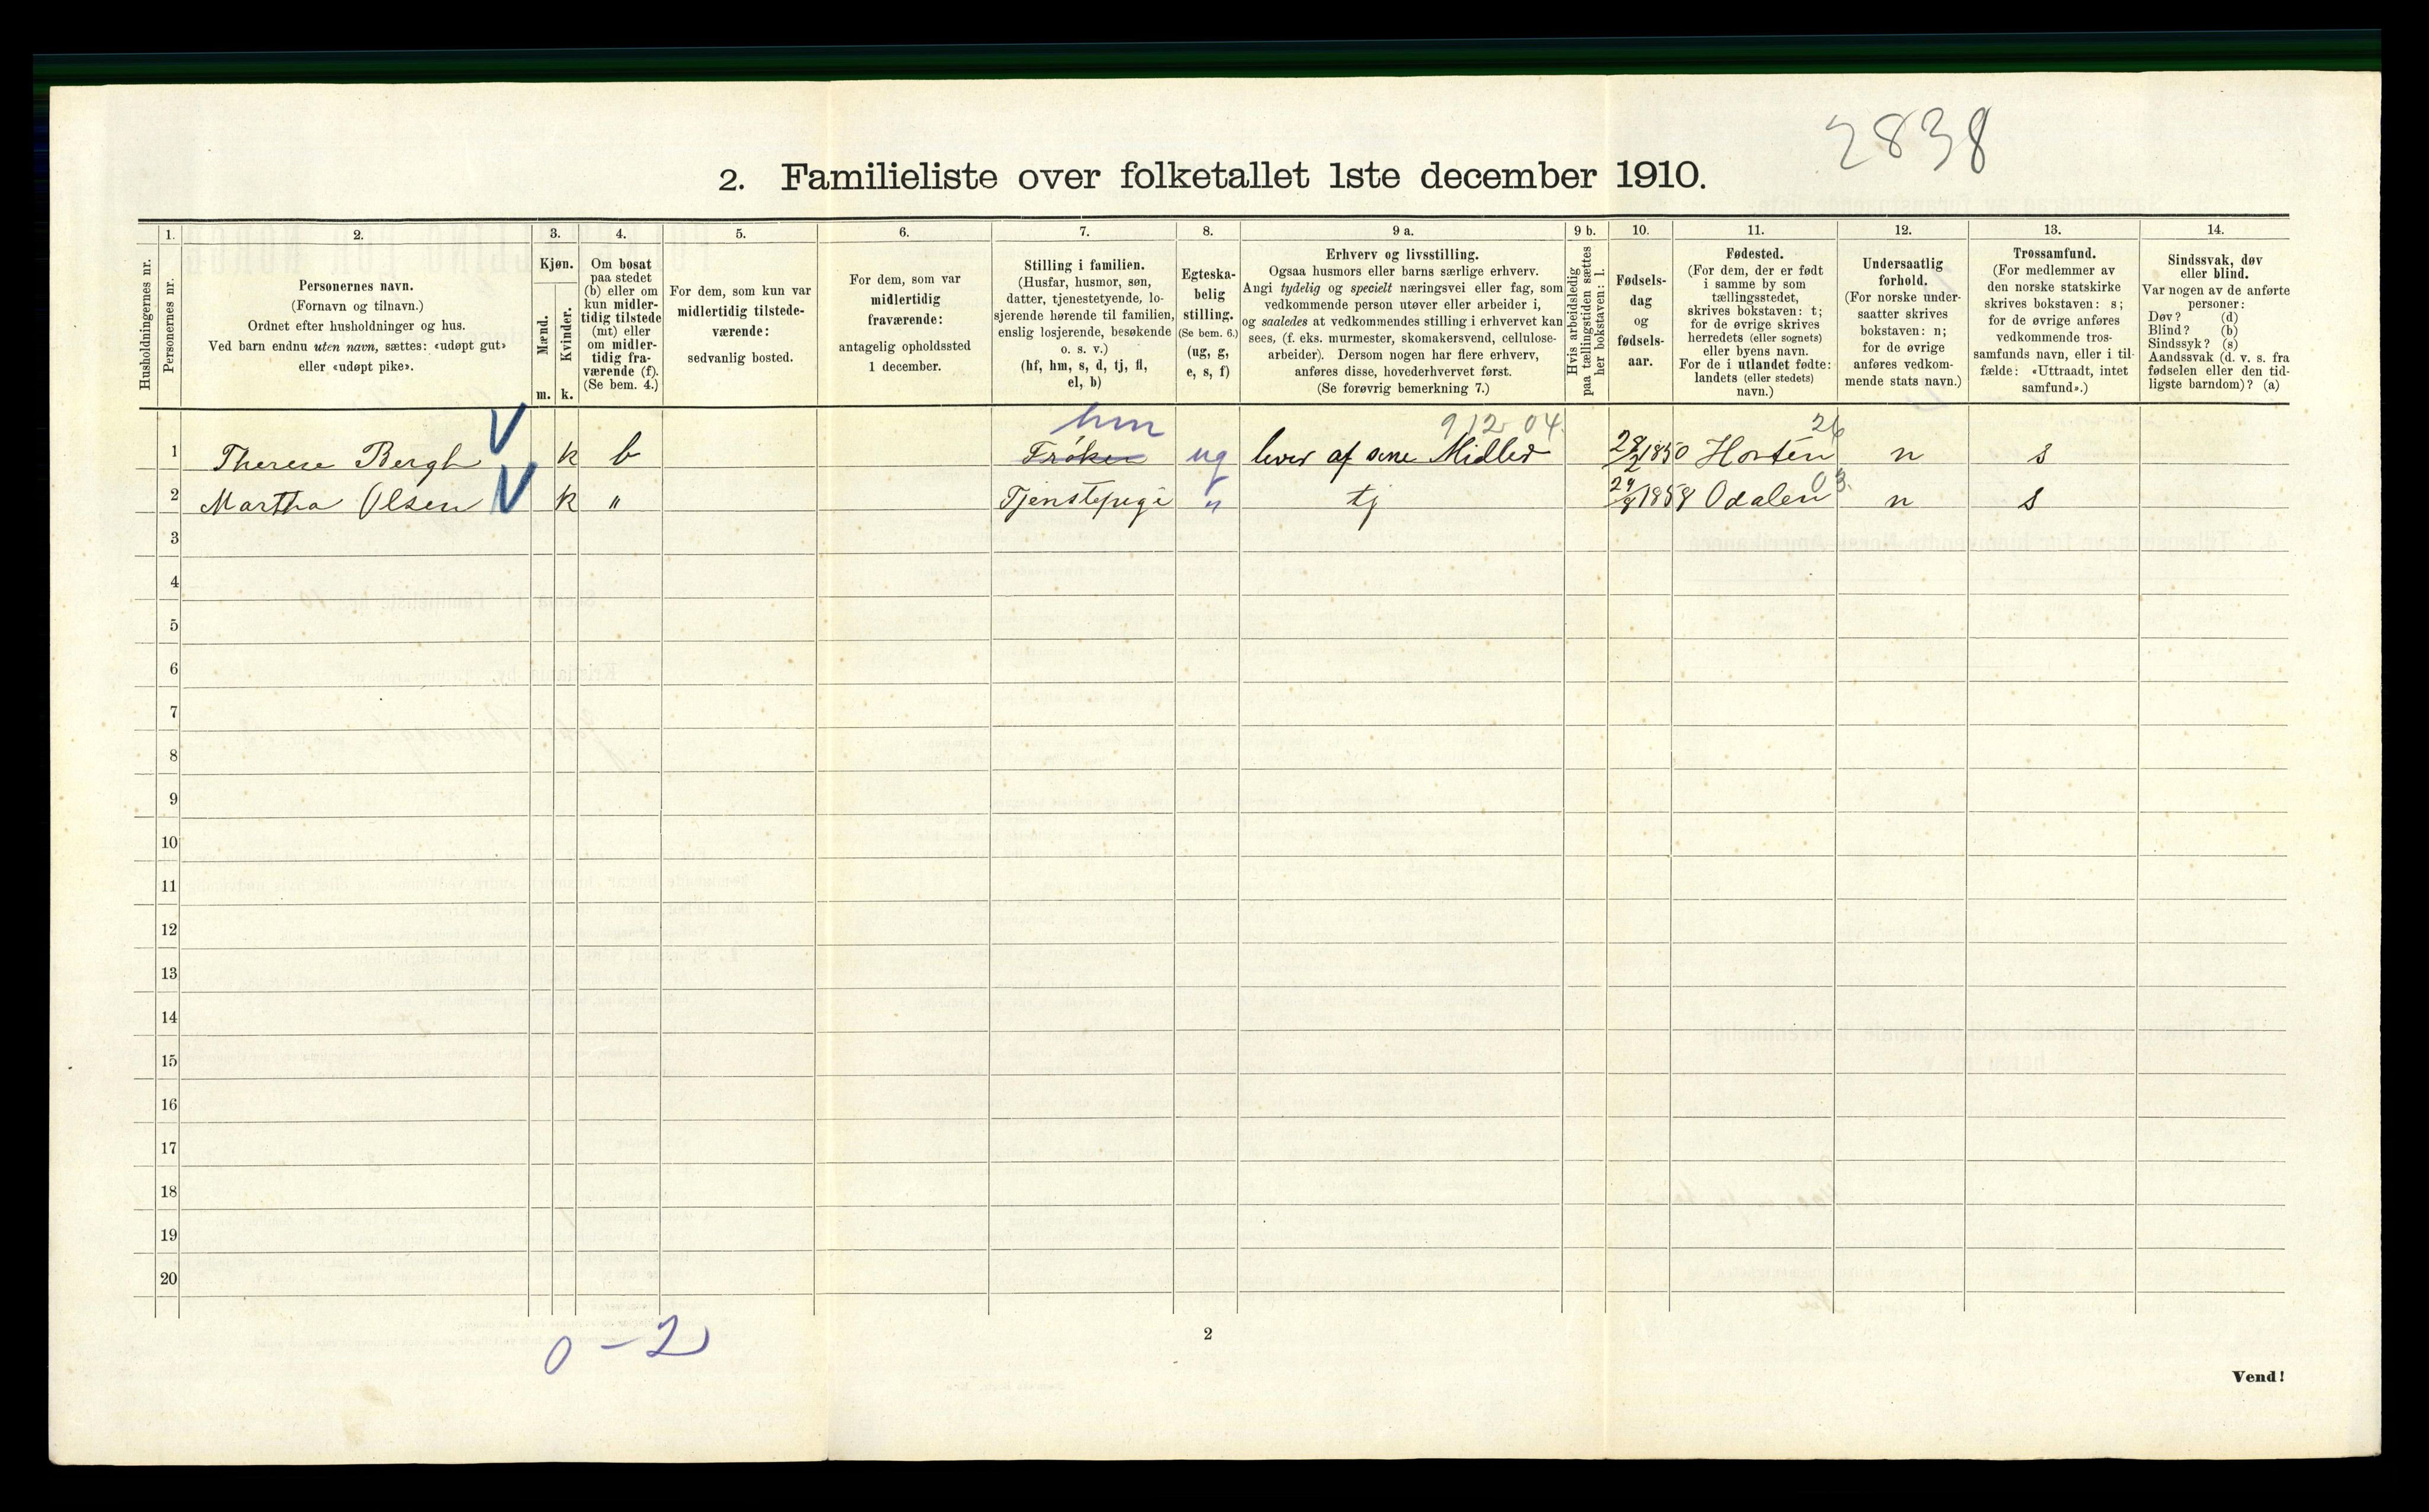 2838
2. Familieliste over folketallet 1ste december 1910.
1. 2. 3. 4. 5. 6. 7. 8. 9 a. 9 b. 10. 11. 12. 13. 14.
Husholdningernes nr.
Personernes nr.
Personernes navn.
(Fornavn og tilnavn.)
Ordnet efter husholdninger og hus.
Ved barn endnu uten navn, sættes: «udøpt gut»
eller «udøpt pike».
Kjøn.
Mænd.
Kvinder.
m. k.
Om bosat
paa stedet
(b) eller om
kun midler-
tidig tilstede
(mt) eller
om midler-
tidig fra-
værende (f).
(Se bem. 4.)
For dem, som kun var
midlertidig tilstede-
værende:
sedvanlig bosted.
For dem, som var
midlertidig
fraværende:
antagelig opholdssted
1 december.
Stilling i familien.
(Husfar, husmor, søn,
datter, tjenestetyende, lo-
sjerende hørende til familien,
enslig losjerende, besøkende
o. s. v.)
(hf, hm, s, d, tj, fl,
el, b)
Egteska-
belig
stilling.
(Se bem. 6.)
(ug, g,
e, s, f)
Erhverv og livsstilling.
Ogsaa husmors eller barns særlige erhverv.
Angi tydelig og specielt næringsvei eller fag, som
vedkommende person utøver eller arbeider i,
og saaledes at vedkommendes stilling i erhvervet kan
sees, (f. eks. murmester, skomakersvend, cellulose-
arbeider). Dersom nogen har flere erhverv,
anføres disse, hovederhvervet først.
(Se forøvrig bemerkning 7.)
Hvis arbeidsledig
paa tællingstiden sættes
her bokstaven: l.
Fødsels-
dag
og
fødsels-
aar.
Fødested.
(For dem, der er født
i samme by som
tællingsstedet,
skrives bokstaven: t;
for de øvrige skrives
herredets (eller sognets)
eller byens navn.
For de i utlandet fødte:
landets (eller stedets)
navn.)
Undersaatlig
forhold.
(For norske under-
saatter skrives
bokstaven: n;
for de øvrige
anføres vedkom-
mende stats navn.)
Trossamfund.
(For medlemmer av
den norske statskirke
skrives bokstaven: s;
for de øvrige anføres
vedkommende tros-
samfunds navn, eller i til-
fælde: «Uttraadt, intet
samfund».)
Sindssvak, døv
eller blind.
Var nogen av de anførte
personer:
Døv? (d)
Blind? (b)
Sindssyk? (s)
Aandssvak (d. v. s. fra
fødselen eller den tid-
ligste barndom)? (a)
hm 912 04. 26
1 Therese Bergh V k b Frøken ug lever af sine Midler 1850 Horten n s
03.
2 Martha Olsen V k " Tjenstepige " tj 1858 Odalen n s
3
4
5
6
7
8
9
10
11
12
13
14
15
16
17
18
19
20
0 - 2
2
Vend!